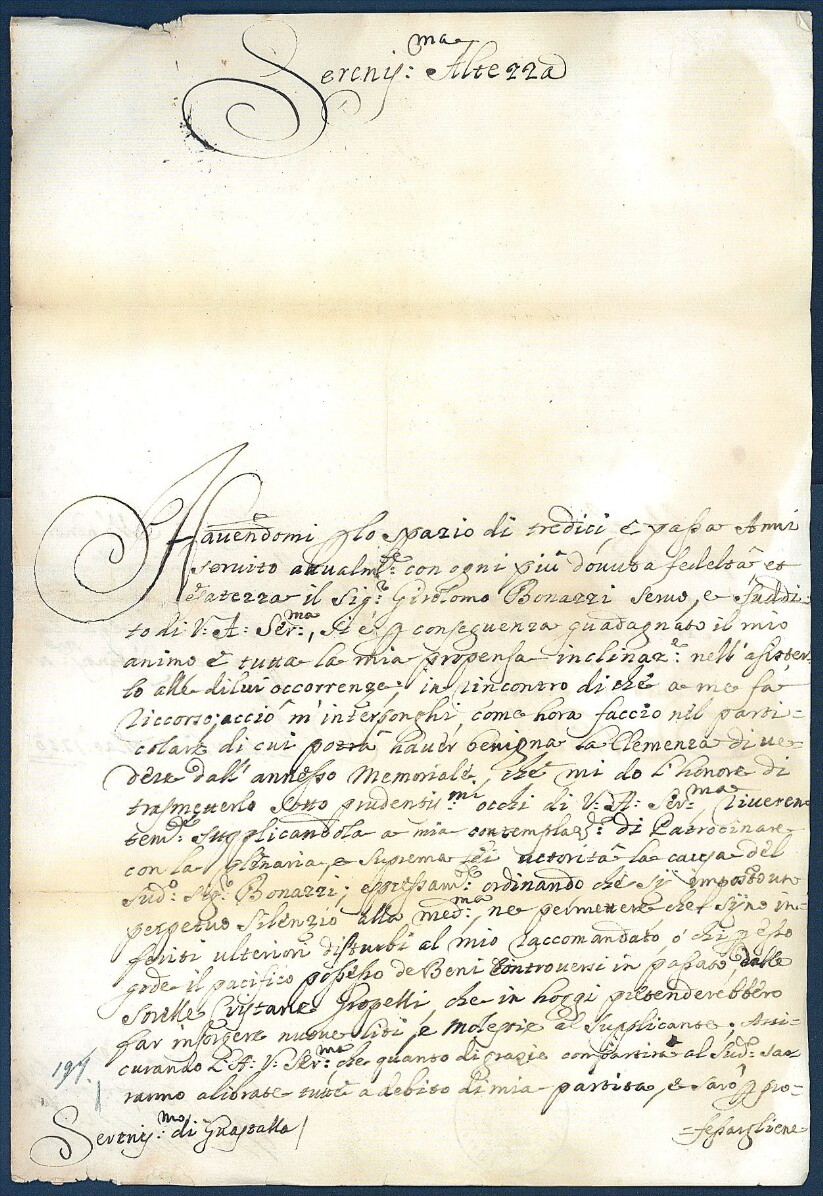 Sereniss:ma Altezza
Havendomi p lo spazio di tredici, e passa Anni
servito attualmte: con ogni più dovuta fedeltà et
il Sigr: Girolomo Bonazzi servo, e suddi-
to di V: A: Serma:, si è p conseguenza guadagnato il mio
animo e tutta la mia propensa inclinaze: nell'assister-
lo alle dilui occorrenze; in rincontro di che a me fà
riccorso, acciò m'interponghi, come hora faccio nel parti=
colare di cui potrà haver benigna la Clemenza di ve-
dere dall'annesso Memoriale, che mi do l'honore di
trasmeterlo sotto prudentismi: occhi di V: A: Serma: riveren
temte: supplicandola a mia contemplaze: di Patrocinare
con la plenaria, e suprema autorità la causa del
sudo: Sigr: Bonazzi; espressamte: ordinando che sij imposto un
perpetuo silenzio alla medma:, ne permettere che sijno in-
feriti ulteriori disturbi al mio raccomandato, ò chi p esso
gode il pacifico possesso de Beni controversi in passato dalle
sorelle Cristane Propelli, che in hoggi pretenderebbero
far insorgere nuove liti, e molestie al supplicante; Assi-
curando L'A: V: Serma: che quanto di grazie compartirà al Sudo: sa
ranno alibrate tutte a debito di mia partita, e sarò p pro=
=fessargliene
Sereniss:mo di Guastalla